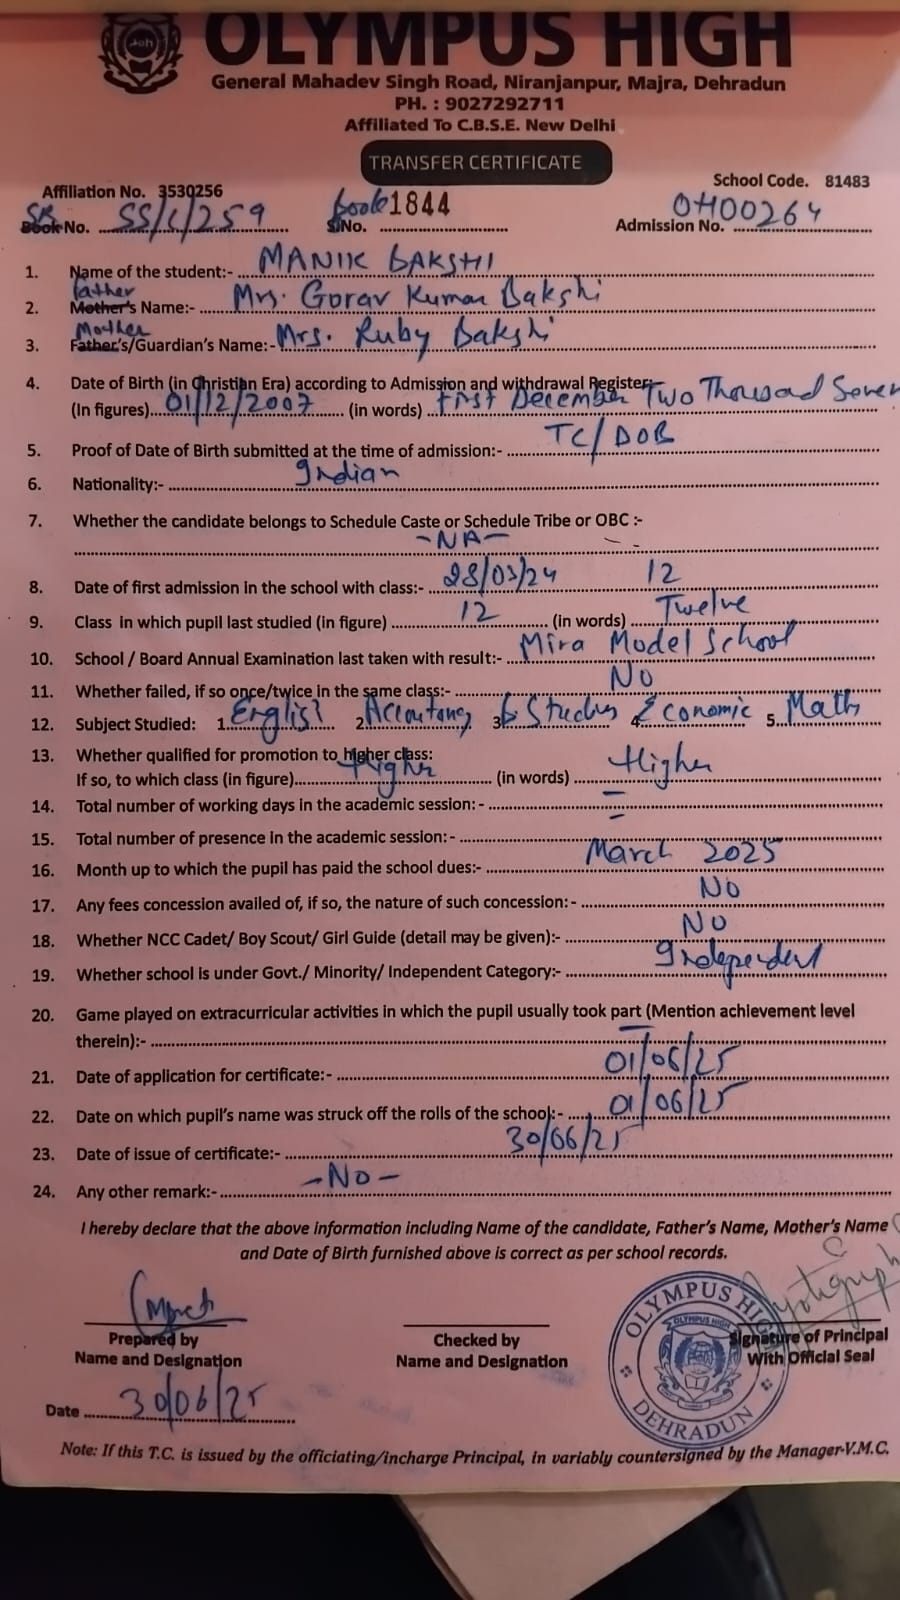 OLYMPUS HIGH
General Mahadev Singh Road, Niranjanpur, Majra, Dehradun
PH. : 9027292711
Affiliated To C.B.S.E. New Delhi
TRANSFER CERTIFICATE
Affiliation No. 3530256 School Code. 81483
SR Book No. SS/C/259 Book S.No. 1844 Admission No. OH00264
1. Name of the student:- MANIK BAKSHI
Father
2. Mother's Name:- Mrs. Gorav Kumar Bakshi
Mother
3. Father's/Guardian's Name:- Mrs. Ruby Bakshi
4. Date of Birth (in Christian Era) according to Admission and withdrawal Register:-
(In figures) 01/12/2007 (in words) First December Two Thousand Seven
5. Proof of Date of Birth submitted at the time of admission:- TC/DOB
6. Nationality:- Indian
7. Whether the candidate belongs to Schedule Caste or Schedule Tribe or OBC :-
-NA-
8. Date of first admission in the school with class:- 28/03/24 12
9. Class in which pupil last studied (in figure) 12 (in words) Twelve
10. School / Board Annual Examination last taken with result:- Mira Model School
11. Whether failed, if so once/twice in the same class:- No
12. Subject Studied: 1. English 2. Accountancy 3. B Studies 4. Economic 5. Math
13. Whether qualified for promotion to higher class:
If so, to which class (in figure) Higher (in words) Higher
14. Total number of working days in the academic session: - –
15. Total number of presence in the academic session:- –
16. Month up to which the pupil has paid the school dues:- March 2025
17. Any fees concession availed of, if so, the nature of such concession: - No
18. Whether NCC Cadet/ Boy Scout/ Girl Guide (detail may be given):- No
19. Whether school is under Govt./ Minority/ Independent Category:- Independent
20. Game played on extracurricular activities in which the pupil usually took part (Mention achievement level
therein):- –
21. Date of application for certificate:- 01/06/25
22. Date on which pupil's name was struck off the rolls of the school:- 01/06/25
23. Date of issue of certificate:- 30/06/25
24. Any other remark:- -No-
I hereby declare that the above information including Name of the candidate, Father's Name, Mother's Name
and Date of Birth furnished above is correct as per school records.
OLYMPUS HIGH
OLYMPUS HIGH
DEHRADUN
Prepared by Checked by Signature of Principal
Name and Designation Name and Designation With Official Seal
Date 30/06/25
Note: If this T.C. is issued by the officiating/incharge Principal, in variably countersigned by the Manager-V.M.C.